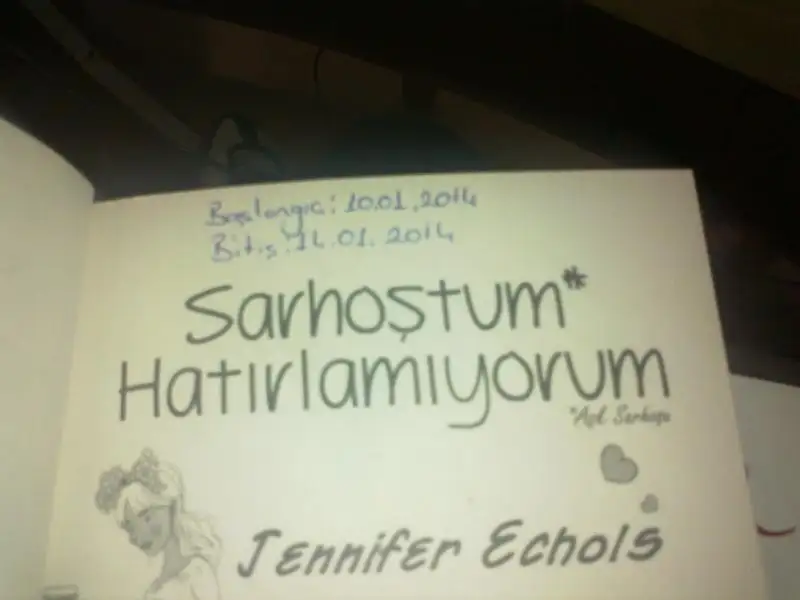 Başlangıç: 10.01.2014
Bitiş: 14.01.2014
Sarhoştum*
Hatırlamıyorum
*Aşk Sarhoşu
Jennifer Echols